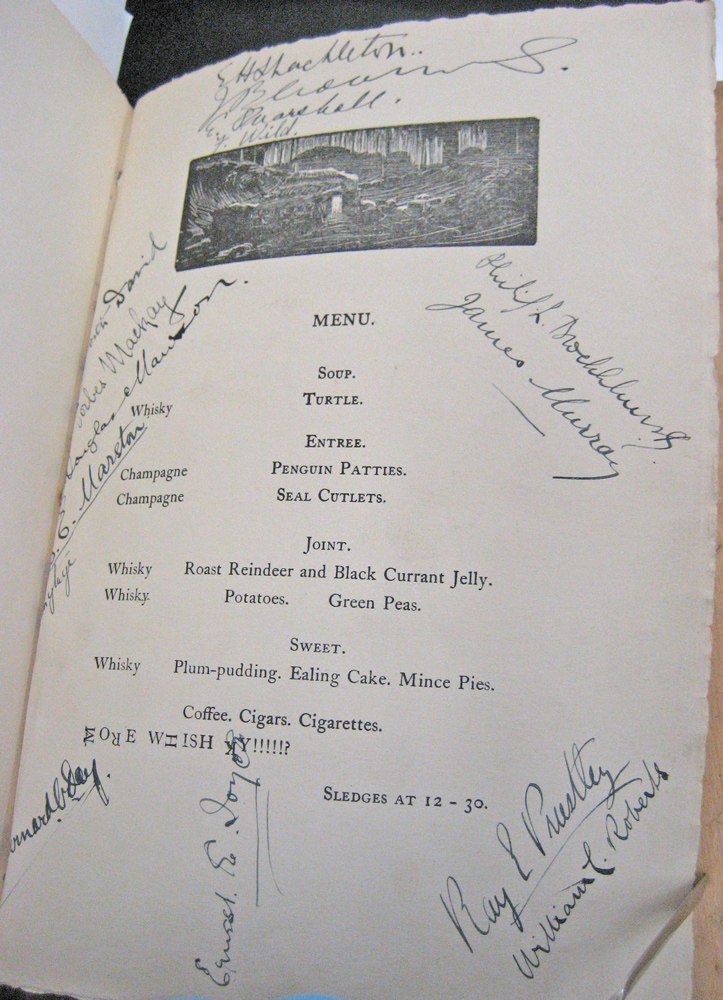 EHShackleton.
E. Marshall.
F. Wild.
David
Forbes Mackay
Douglas Mawson.
Philip L. Brocklehurst.
James Murray
MENU.
SOUP.
Whisky TURTLE.
ENTREE.
Champagne PENGUIN PATTIES.
Champagne SEAL CUTLETS.
Marston
JOINT.
Whisky Roast Reindeer and Black Currant Jelly.
Whisky. Potatoes. Green Peas.
SWEET.
Whisky Plum-pudding. Ealing Cake. Mince Pies.
Coffee. Cigars. Cigarettes.
MORE WHISH KY!!!!!?
SLEDGES AT 12 - 30.
Day.
Ernest. E. Joyce
Ray E Priestley
William C. Roberts